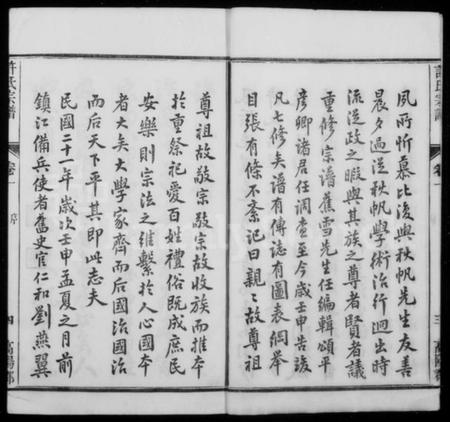 許氏宗譜
卷一
三
高陽郡
夙所忻慕比後與秋帆先生友善
晨夕過從秋帆學術治行迥出時
流從政之暇與其族之尊者賢者議
重修宗譜蕉雪先生任編輯頌平
彥卿諸君任調查至今歲壬申告竣
凡七修矣譜有傳誌有圖表綱舉
目張有條不紊記曰親〻故尊祖
尊祖故敬宗敬宗故收族而推本
於重祭祀愛百姓禮俗既成庶民
安樂則宗法之維繫於人心國本
者大矣大學家齊而后國治國治
而后天下平其即此志夫
民國二十一年歲次壬申孟夏之月前
鎮江備兵使者舊史官仁和劉燕翼
許氏宗譜
卷一
序
四
高陽郡